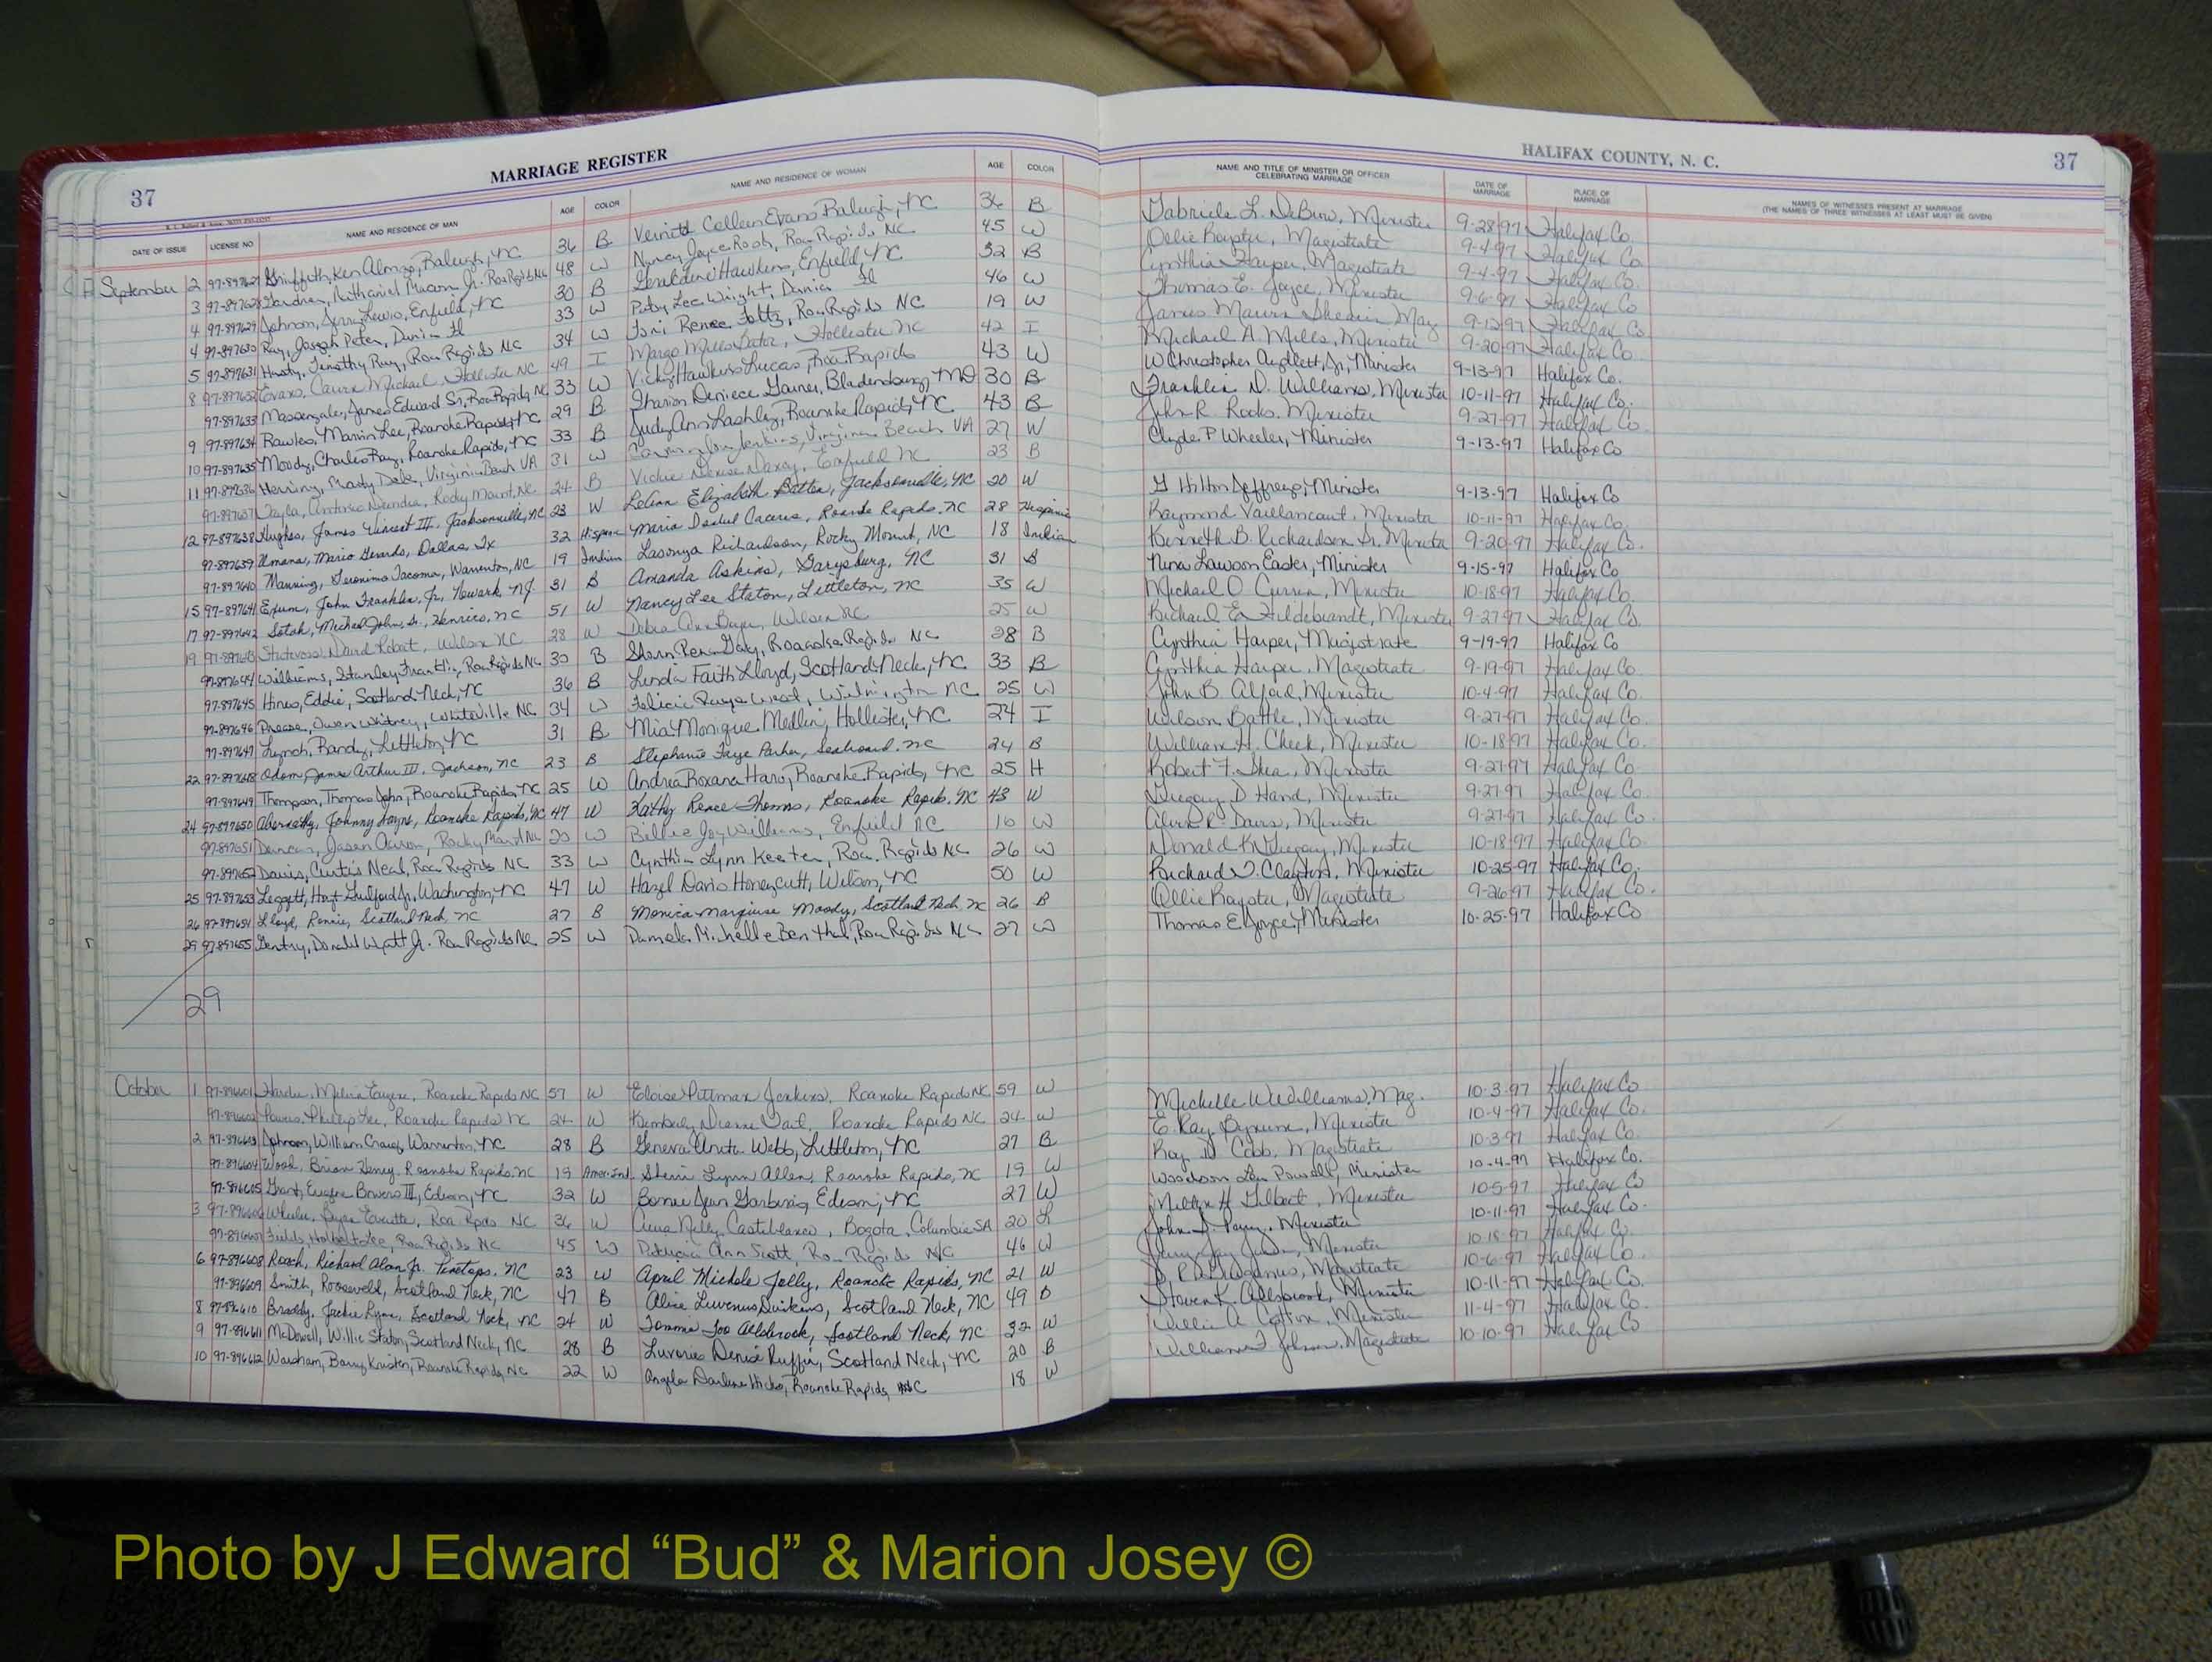 MARRIAGE REGISTER
HALIFAX COUNTY, N. C.
37
37
DATE OF ISSUE LICENSE NO NAME AND RESIDENCE OF MAN AGE COLOR NAME AND RESIDENCE OF WOMAN AGE COLOR NAME AND TITLE OF MINISTER OR OFFICER CELEBRATING MARRIAGE DATE OF MARRIAGE PLACE OF MARRIAGE NAMES OF WITNESSES PRESENT AT MARRIAGE (THE NAMES OF THREE WITNESSES AT LEAST MUST BE GIVEN)
September 2 97-897627 Griffeth, Ken Raleigh, NC 36 B Colleen Evans Raleigh, NC 36 B Gabriele L. DeBrew, Minister 9-28-97 Halifax Co.
3 97-897628 Gardner, Nathaniel Macon Jr. Roa Rapids NC 48 W Nancy Joyce Rook, Roa Rapids NC 45 W Ollie Royster, Magistrate 9-4-97 Halifax Co
4 97-897629 Johnson, Jerry Lewis, Enfield, NC 30 B Geraldine Hawkins, Enfield, NC 32 B Cynthia Harper, Magistrate 9-4-97 Halifax Co.
4 97-897630 Ray, Joseph Peter, Dania Fl 33 W Lee Wright, Dania Fl 46 W Thomas E. Joyce, Minister 9-6-97 Halifax Co
5 97-897631 Hasty, Timothy Ray, Roa Rapids NC 34 W Toni Renee Fultz, Roa Rapids NC 19 W James Mag 9-12-97 Halifax Co
8 97-897632 Evans, Michael, Hollister NC 49 I Margo Mills Hollister NC 42 I Michael A. Mills, Minister 9-20-97 Halifax Co.
97-897633 Massengale, James Edward Sr, Roa Rapids, NC 33 W Vicky Hawkins Lucas, Roa Rapids 43 W W Christopher Aydlett, Jr, Minister 9-13-97 Halifax Co.
9 97-897634 Rawles, Marvin Lee, Roanoke Rapids, NC 29 B Sharion Deniece Gainer, Bladensburg, MD 30 B Franklin D. Williams, Minister 10-11-97 Halifax Co.
10 97-897635 Moody, Charles Ray, Roanoke Rapids, NC 33 B Judy Ann Lashley, Roanoke Rapids, NC 43 B John R. Rooks, Minister 9-27-97 Halifax Co
11 97-897636 Herring, Marty Dale, Virginia Beach VA 31 W Jenkins, Virginia Beach VA 27 W Clyde P Wheeler, Minister 9-13-97 Halifax Co
97-897637 Rocky Mount, NC 24 B Vickie Denise Enfield NC 23 B
12 97-897638 Hughes, James Vincent III, Jacksonville, NC 23 W LeAnn Elizabeth Batten, Jacksonville, NC 20 W G Hilton Jeffreys, Minister 9-13-97 Halifax Co
97-897639 Umana, Mario Gerardo, Dallas, Tx 32 Hispanic Maria Caceres, Roanoke Rapids, NC 28 Hispanic Raymond Vaillancourt, Minister 10-11-97 Halifax Co.
97-897640 Manning, Geronimo Tacoma, Warrenton, NC 19 Indian Lasonya Richardson, Rocky Mount, NC 18 Indian Kenneth B. Richardson Sr. Minister 9-20-97 Halifax Co.
15 97-897641 Exum, John Franklin, Jr., Newark, NJ. 31 B Amanda Askins, Garysburg, NC 31 B Nina Lawson Easter, Minister 9-15-97 Halifax Co
17 97-897642 Michael John, Sr., Henrico, NC 51 W Nancy Lee Staton, Littleton, NC 35 W Michael O Curren, Minister 10-18-97 Halifax Co.
19 97-897643 David Robert, Wilson NC 28 W Debra Ann Wilson NC 25 W Richard E. Hildebrandt, Minister 9-27-97 Halifax Co.
97-897644 Williams, Stanley Franklin, Roa Rapids NC 30 B Roanoke Rapids NC 28 B Cynthia Harper, Magistrate 9-19-97 Halifax Co
97-897645 Hines, Eddie, Scotland Neck, NC 36 B Linda Faith Lloyd, Scotland Neck, NC 33 B Cynthia Harper, Magistrate 9-19-97 Halifax Co.
97-897646 Owen Whitney, Whiteville NC 34 W Felicia Faye Wilmington NC 25 W John B. Alford, Minister 10-4-97 Halifax Co.
97-897647 Lynch, Randy, Littleton, NC 31 B Mia Monique Medlin, Hollister, NC 24 I Wilson Battle, Minister 9-27-97 Halifax Co.
22 97-897648 Odom, James Arthur III, Jackson, NC 23 B Stephanie Faye Parker, Seaboard, NC 24 B William H. Cheek, Minister 10-18-97 Halifax Co.
97-897649 Thompson, Thomas John, Roanoke Rapids, NC 25 W Andrea Roxana Haro, Roanoke Rapids, NC 25 H Robert F. Shea, Minister 9-27-97 Halifax Co
24 97-897650 Abernathy, Johnny Wayne, Roanoke Rapids, NC 47 W Kathy Renee Thomas, Roanoke Rapids, NC 43 W Gregory D Hand, Minister 9-27-97 Halifax Co
97-897651 Duncan, Jason Aaron, Rocky Mount NC 20 W Billie Joy Williams, Enfield NC 16 W Davis, Minister 9-27-97 Halifax Co.
97-897652 Davis, Curtis Neal, Roa Rapids NC 33 W Cynthia Lynn Keeter, Roa. Rapids NC 26 W Donald K. Gregory, Minister 10-18-97 Halifax Co.
25 97-897653 Leggett, Hoyt Guilford Jr, Washington, NC 47 W Hazel Davis Honeycutt, Wilson, NC 50 W Richard D. Clayton, Minister 10-25-97 Halifax Co.
26 97-897654 Lloyd, Ronnie, Scotland Neck, NC 27 B Monica Moody, Scotland Neck, NC 26 B Ollie Royster, Magistrate 9-26-97 Halifax Co.
29 97-897655 Gentry, Donald Wyatt Jr. Roa Rapids NC 25 W Pamela Michelle Benthal, Roa Rapids NC 27 W Thomas E Joyce, Minister 10-25-97 Halifax Co
29
October 1 97-896601 Eugene, Roanoke Rapids NC 57 W Eloise Pittman Jenkins, Roanoke Rapids NC 59 W Michelle W Williams, Mag. 10-3-97 Halifax Co
97-896602 Phillip Lee, Roanoke Rapids NC 24 W Kimberly Dianne Roanoke Rapids NC 24 W E. Ray Bynum, Minister 10-4-97 Halifax Co.
2 97-896603 Johnson, William Craig, Warrenton, NC 28 B Geneva Anita Webb, Littleton, NC 27 B Ray D. Cobb, Magistrate 10-3-97 Halifax Co.
97-896604 Wood, Brian Henry, Roanoke Rapids, NC 19 Amer-Ind. Sherri Lynn Allen, Roanoke Rapids, NC 19 W Woodson Powell, Minister 10-4-97 Halifax Co.
97-896605 Grant, Eugene Bowers III, Edison, NC 32 W Edison, NC 27 W Milton H. Gilbert, Minister 10-5-97 Halifax Co
3 97-896606 Roa Rpds NC 36 W Nelly Castiblanco, Bogota, Columbia SA 20 L John Minister 10-11-97 Halifax Co.
97-896607 Fields, Roa Rapids NC 45 W Patricia Ann Scott, Roa Rapids NC 46 W Minister 10-18-97 Halifax Co.
6 97-896608 Roach, Richard Alan Jr. Pinetops, NC 23 W April Michele Jolly, Roanoke Rapids, NC 21 W Magistrate 10-6-97 Halifax Co.
97-896609 Smith, Roosevelt, Scotland Neck, NC 47 B Alice Scotland Neck, NC 49 B Steven K. Allsbrook, Minister 10-11-97 Halifax Co.
8 97-896610 Braddy, Jackie Lynn, Scotland Neck, NC 24 W Tommie Joo Allsbrook, Scotland Neck, NC 32 W Willie A Cotton, Minister 11-4-97 Halifax Co
9 97-896611 McDowell, Willie Staton, Scotland Neck, NC 28 B Denise Ruffin, Scotland Neck, NC 20 B William F. Johnson, Magistrate 10-10-97 Halifax Co
10 97-896612 Barry Roanoke Rapids, NC 22 W Angela Darlene Hicks, Roanoke Rapids, NC 18 W
Photo by J Edward “Bud” & Marion Josey ©